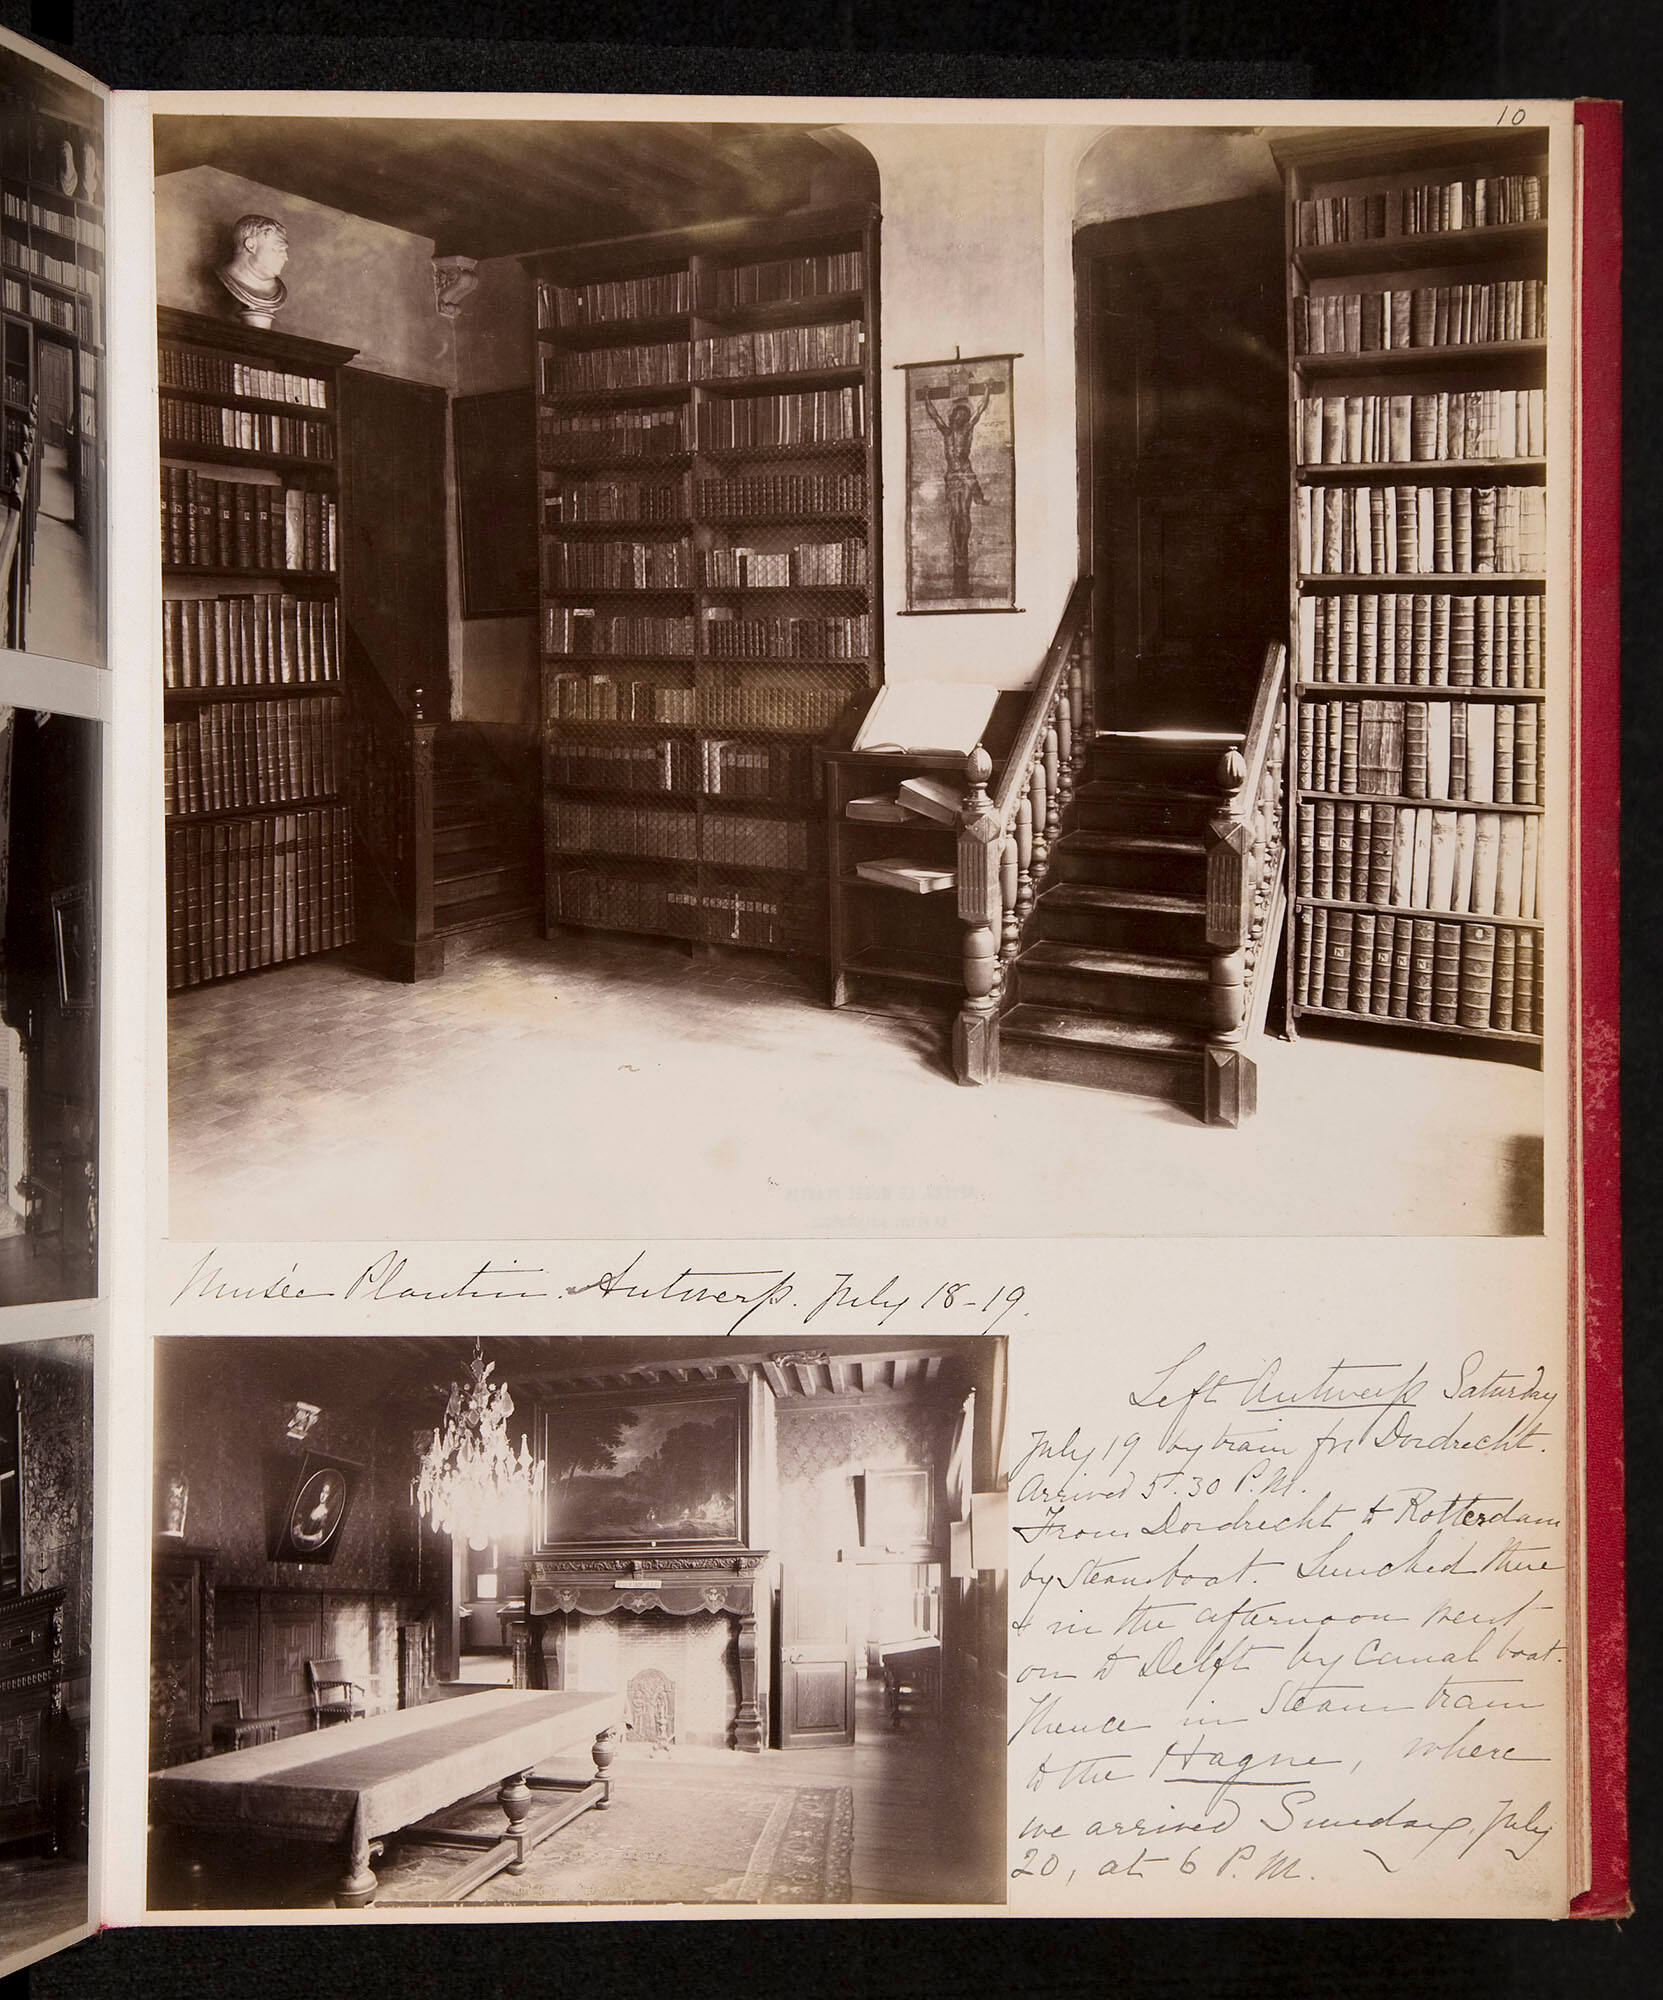 10
Musée Plantin. Antwerp. July 18-19.
Left Antwerp Saturday
July 19 by train for Dordrecht.
Arrived 5.30 P.M.
From Dordrecht to Rotterdam
by Steamboat. Lunched there
& in the afternoon went
on to Delft by Canal boat.
Thence in Steam tram
to the Hague, where
we arrived Sunday, July
20, at 6 P.M.